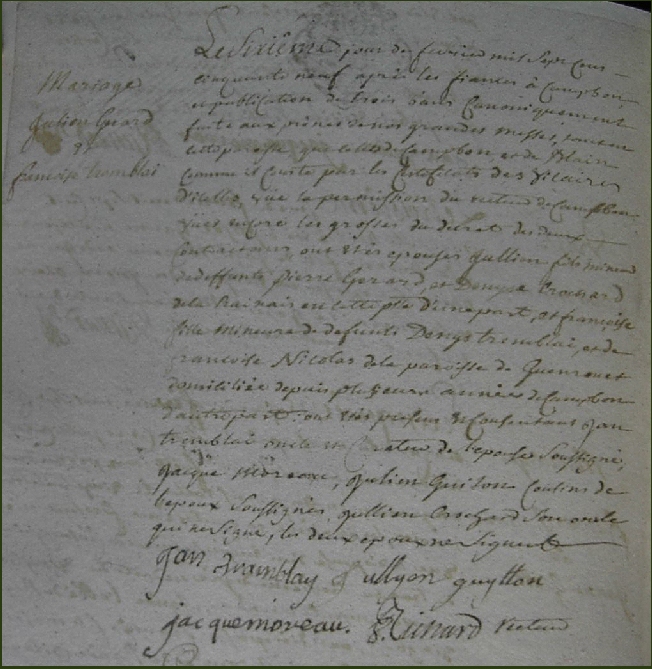 Mariage
Julien Gerard
et
francoise tremblai
Le Sixième jour de fevrier mil Sept Cens
cinquante neuf après les fiances à Campbon
et publication de trois bans Canoniquement
faite aux prônes de nos grandes messes, tant en
cette paroisse que celles de Campbon, et de Blain
comme il Conste par les Certificats des Vicaires
d'icelles, vüe la permission du recteur de Campbon
vües encore les grosses du decret des deux
Contractans, ont étés epousés Jullien fils mineur
de deffunts pierre Gerard, et Denyse Brochard
de la Rainais en cette psse d'une part, et françoise
fille Mineure de defunts Denys tremblai, et de
francoise Nicolas de la paroisse de Quenrouet
domiciliée depuis plusieurs années de Campbon
d'autre part. ont étés presens et Consentans Jan
tremblai oncle curateur de l'epouse Soussigné,
Jacque Moreau, Julien Guiton Cousins de
l'epoux Soussignés, Jullien Brochard Son oncle
qui ne Signe, les deux epoux ne Signent
Jan tramblay Jullyen guytton
jacque moreau. Recteur